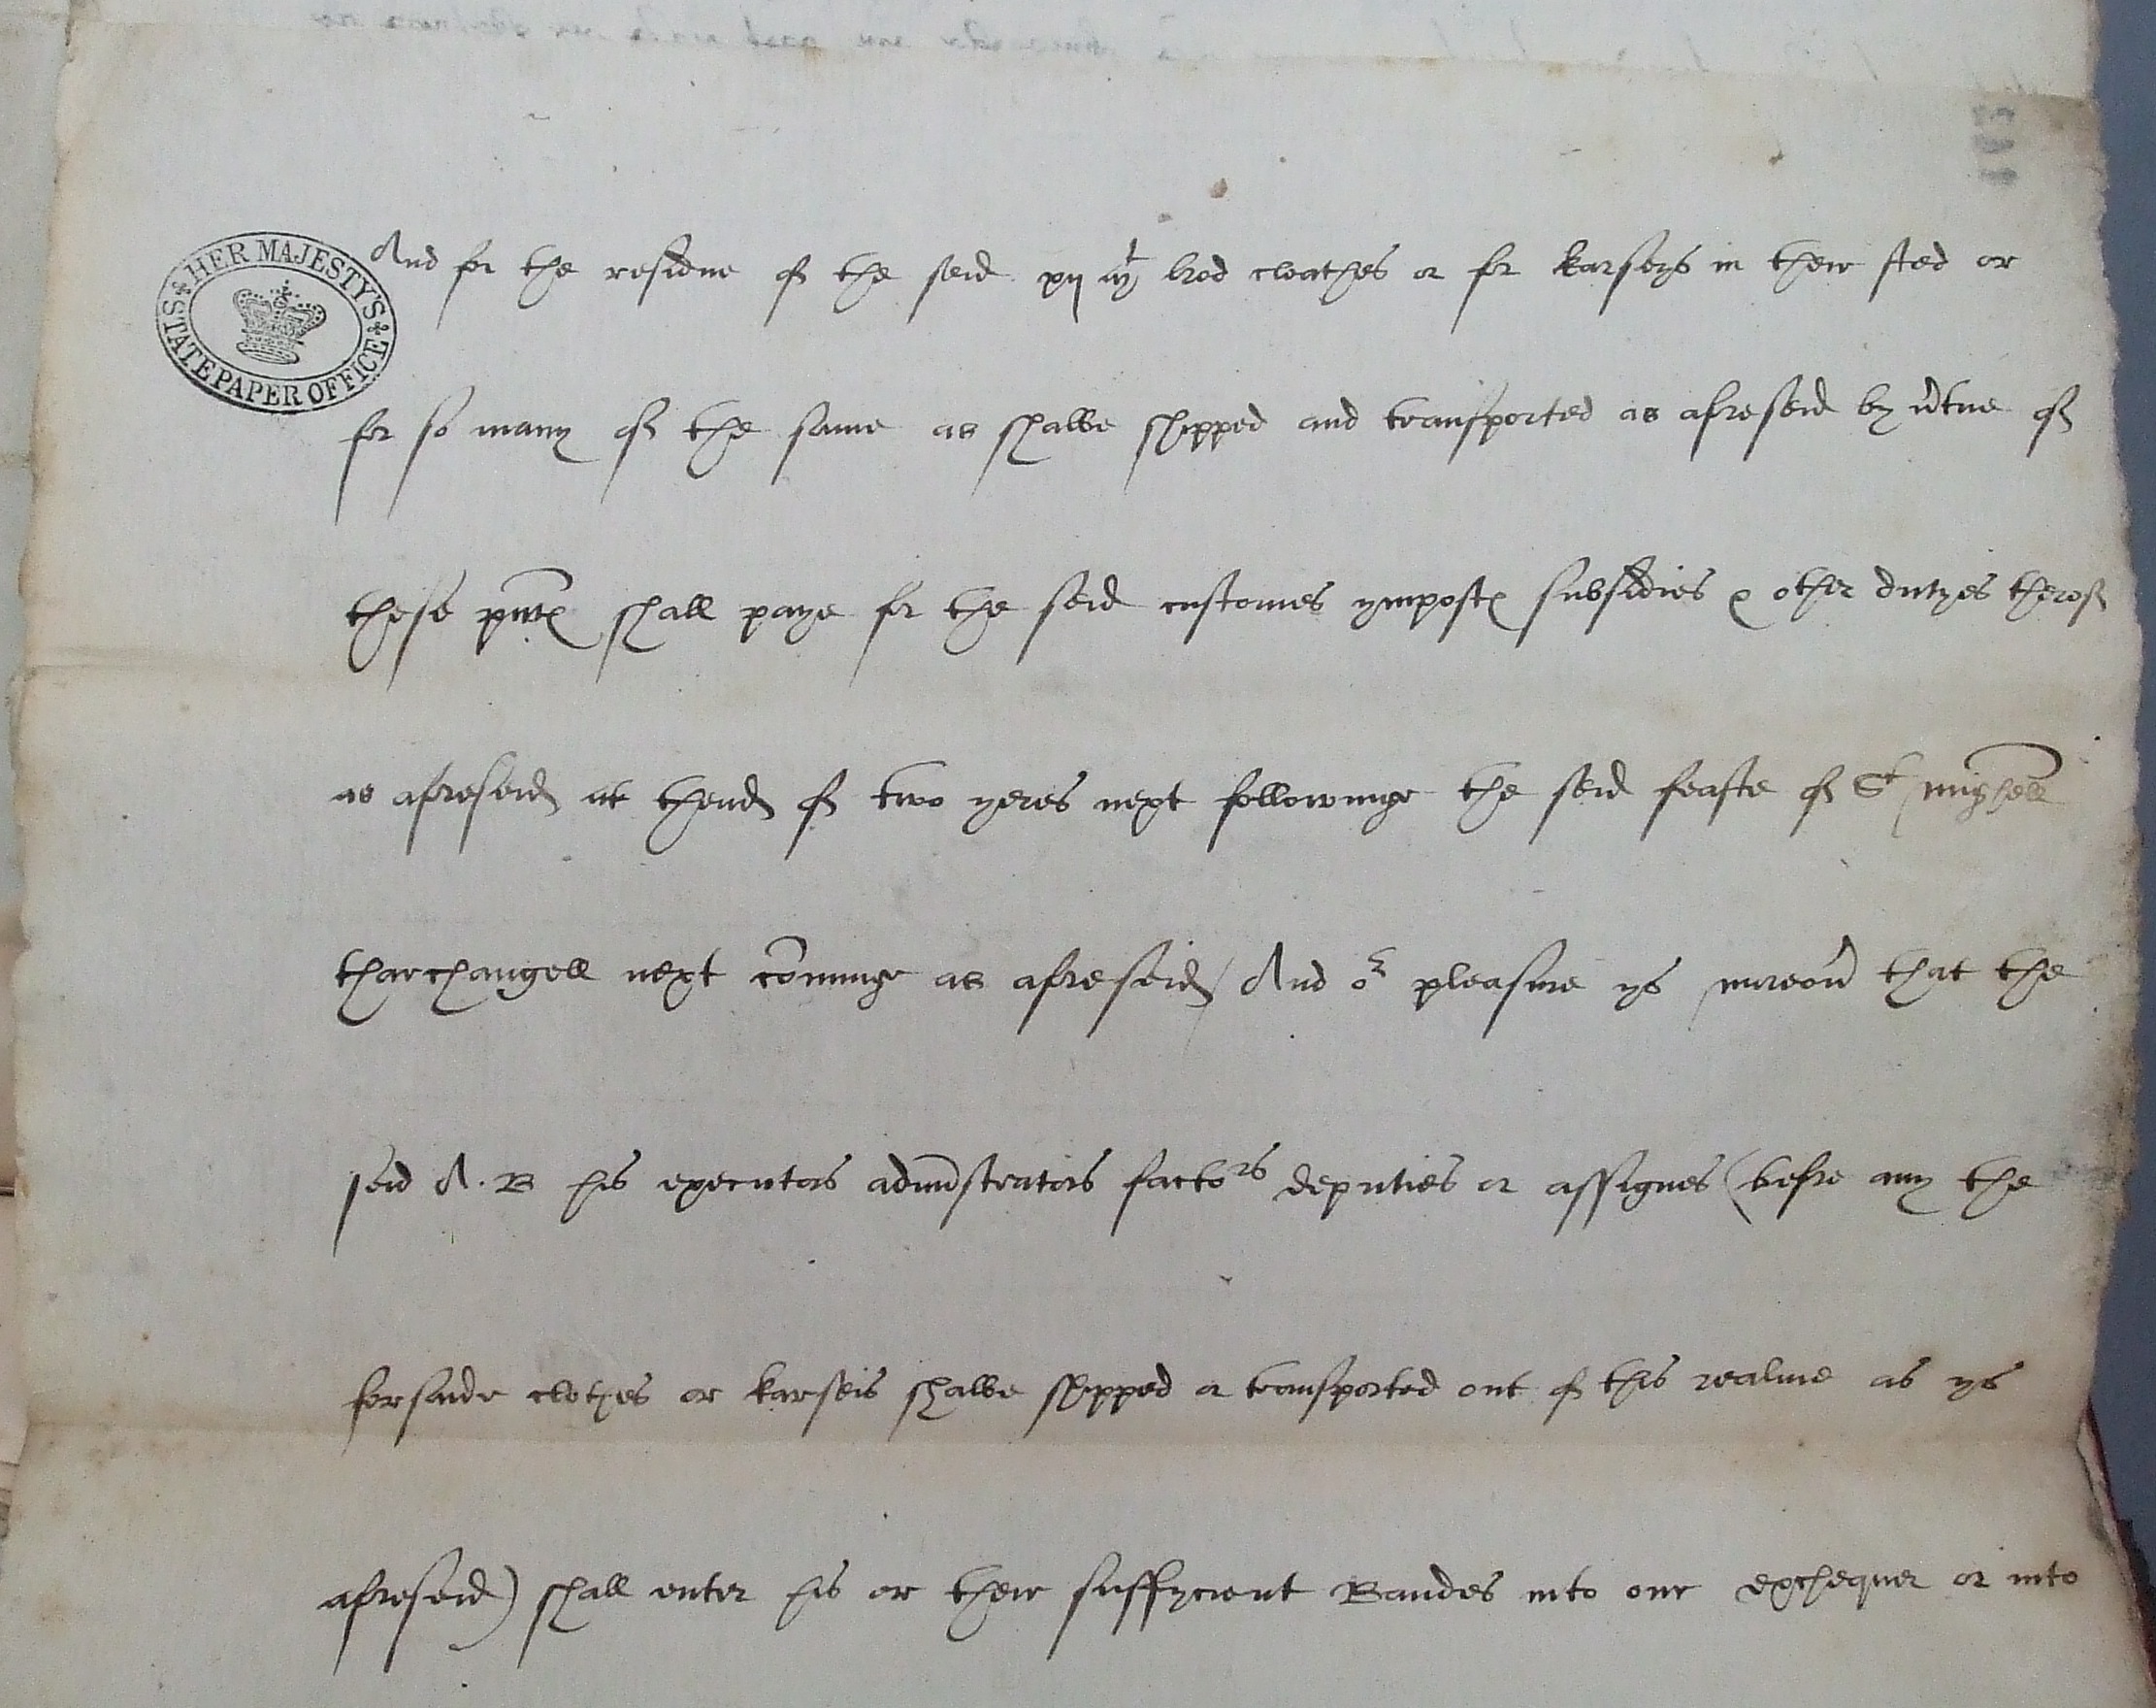 HER MAJESTY'S STATE PAPER OFFICE
And for the residue of the seid xij brod cloathes or for karseys in their sted or
for so many of the same as shalbe shipped and transported as aforeseid by v'tue of
these pñtes shall paye for the seid customes ympostes subsidies & other dutyes therof
as aforeseid at thend of two yeres next followinge the seid feaste of St Mighell
tharchangell next com̄inge as aforeseid / And oʳ pleasure ys moreov' that the
seid A. B his executors admīstrators factoʳs deputies or assignes (before any the
forsaide clothes or karseis shalbe shipped or transported out of this realme as ys
aforeseid) shall enter his or their suffycient Bandes into our exchequer or into